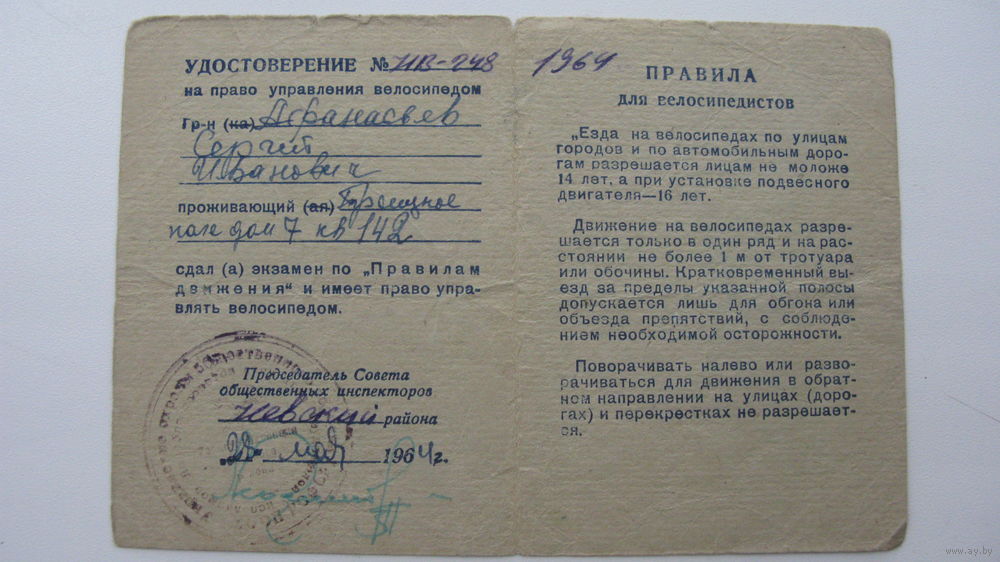 УДОСТОВЕРЕНИЕ № НВ-248
на право управления велосипедом
Гр-н (ка) Афанасьев
Сергей
Иванович
проживающий (ая)
дом 7 кв 142
сдал (а) экзамен по „Правилам
движения“ и имеет право упра-
влять велосипедом.
Председатель Совета
общественных инспекторов
Невский района
„28“ мая 1964 г.
1964
ПРАВИЛА
для велосипедистов
„Езда на велосипедах по улицам
городов и по автомобильным доро-
гам разрешается лицам не моложе
14 лет, а при установке подвесного
двигателя—16 лет.
Движение на велосипедах разре-
шается только в один ряд и на рас-
стоянии не более 1 м от тротуара
или обочины. Кратковременный вы-
езд за пределы указанной полосы
допускается лишь для обгона или
объезда препятствий, с соблюде-
нием необходимой осторожности.
Поворачивать налево или разво-
рачиваться для движения в обрат-
ном направлении на улицах (доро-
гах) и перекрестках не разрешает-
ся.
www.ay.by